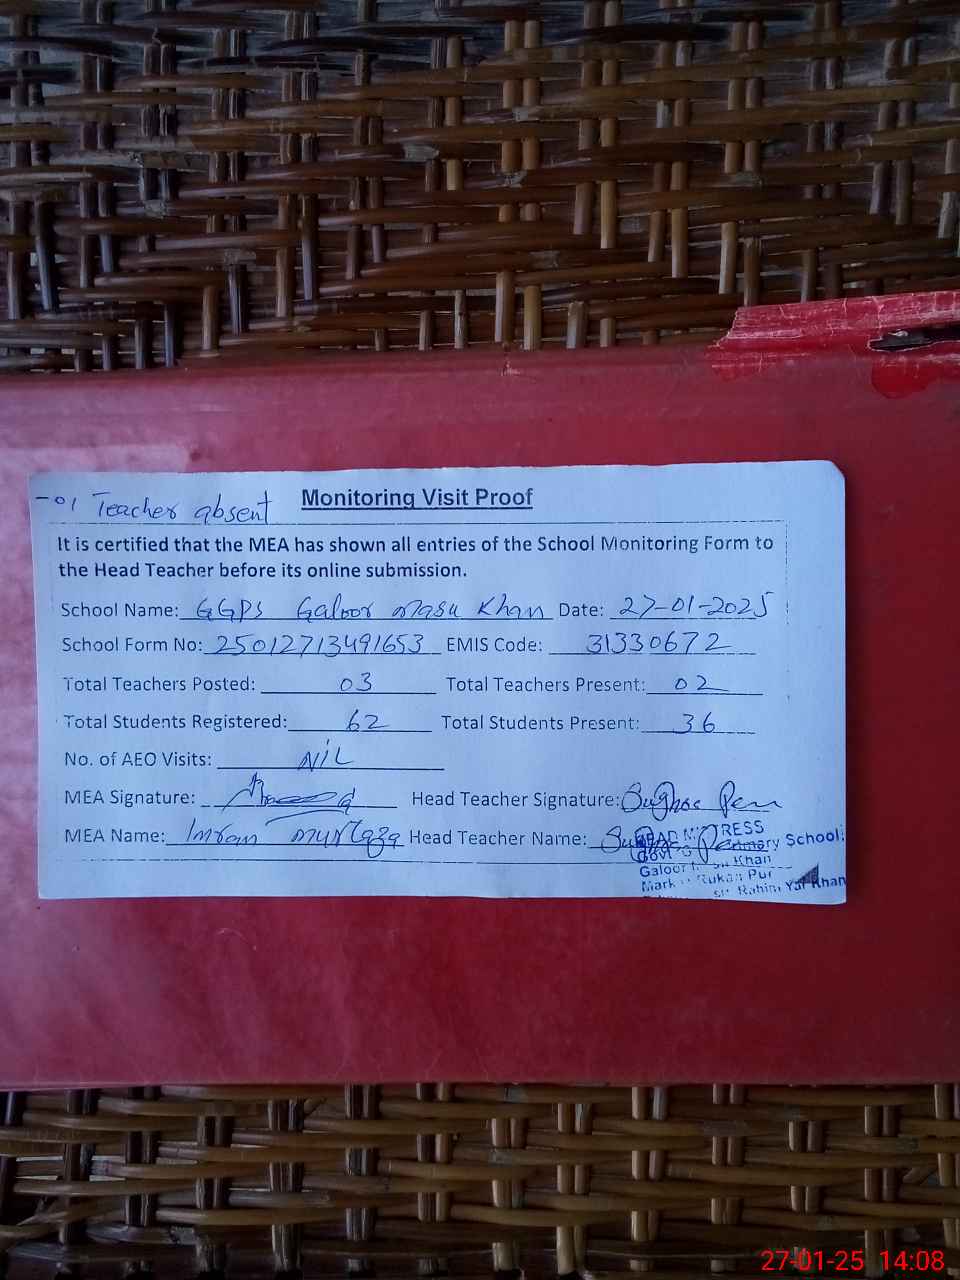 -01 Teacher absent
Monitoring Visit Proof
It is certified that the MEA has shown all entries of the School Monitoring Form to
the Head Teacher before its online submission.
School Name: GGPS Galoor Masu Khan Date: 27-01-2025
School Form No: 25012713491653 EMIS Code: 31330672
Total Teachers Posted: 03 Total Teachers Present: 02
Total Students Registered: 62 Total Students Present: 36
No. of AEO Visits: NIL
MEA Signature: Head Teacher Signature:
MEA Name: Imran Murtaza Head Teacher Name:
School
Galoor Khan
Mark Rukan Pur
Rahim Yar Khan
27-01-25 14:08